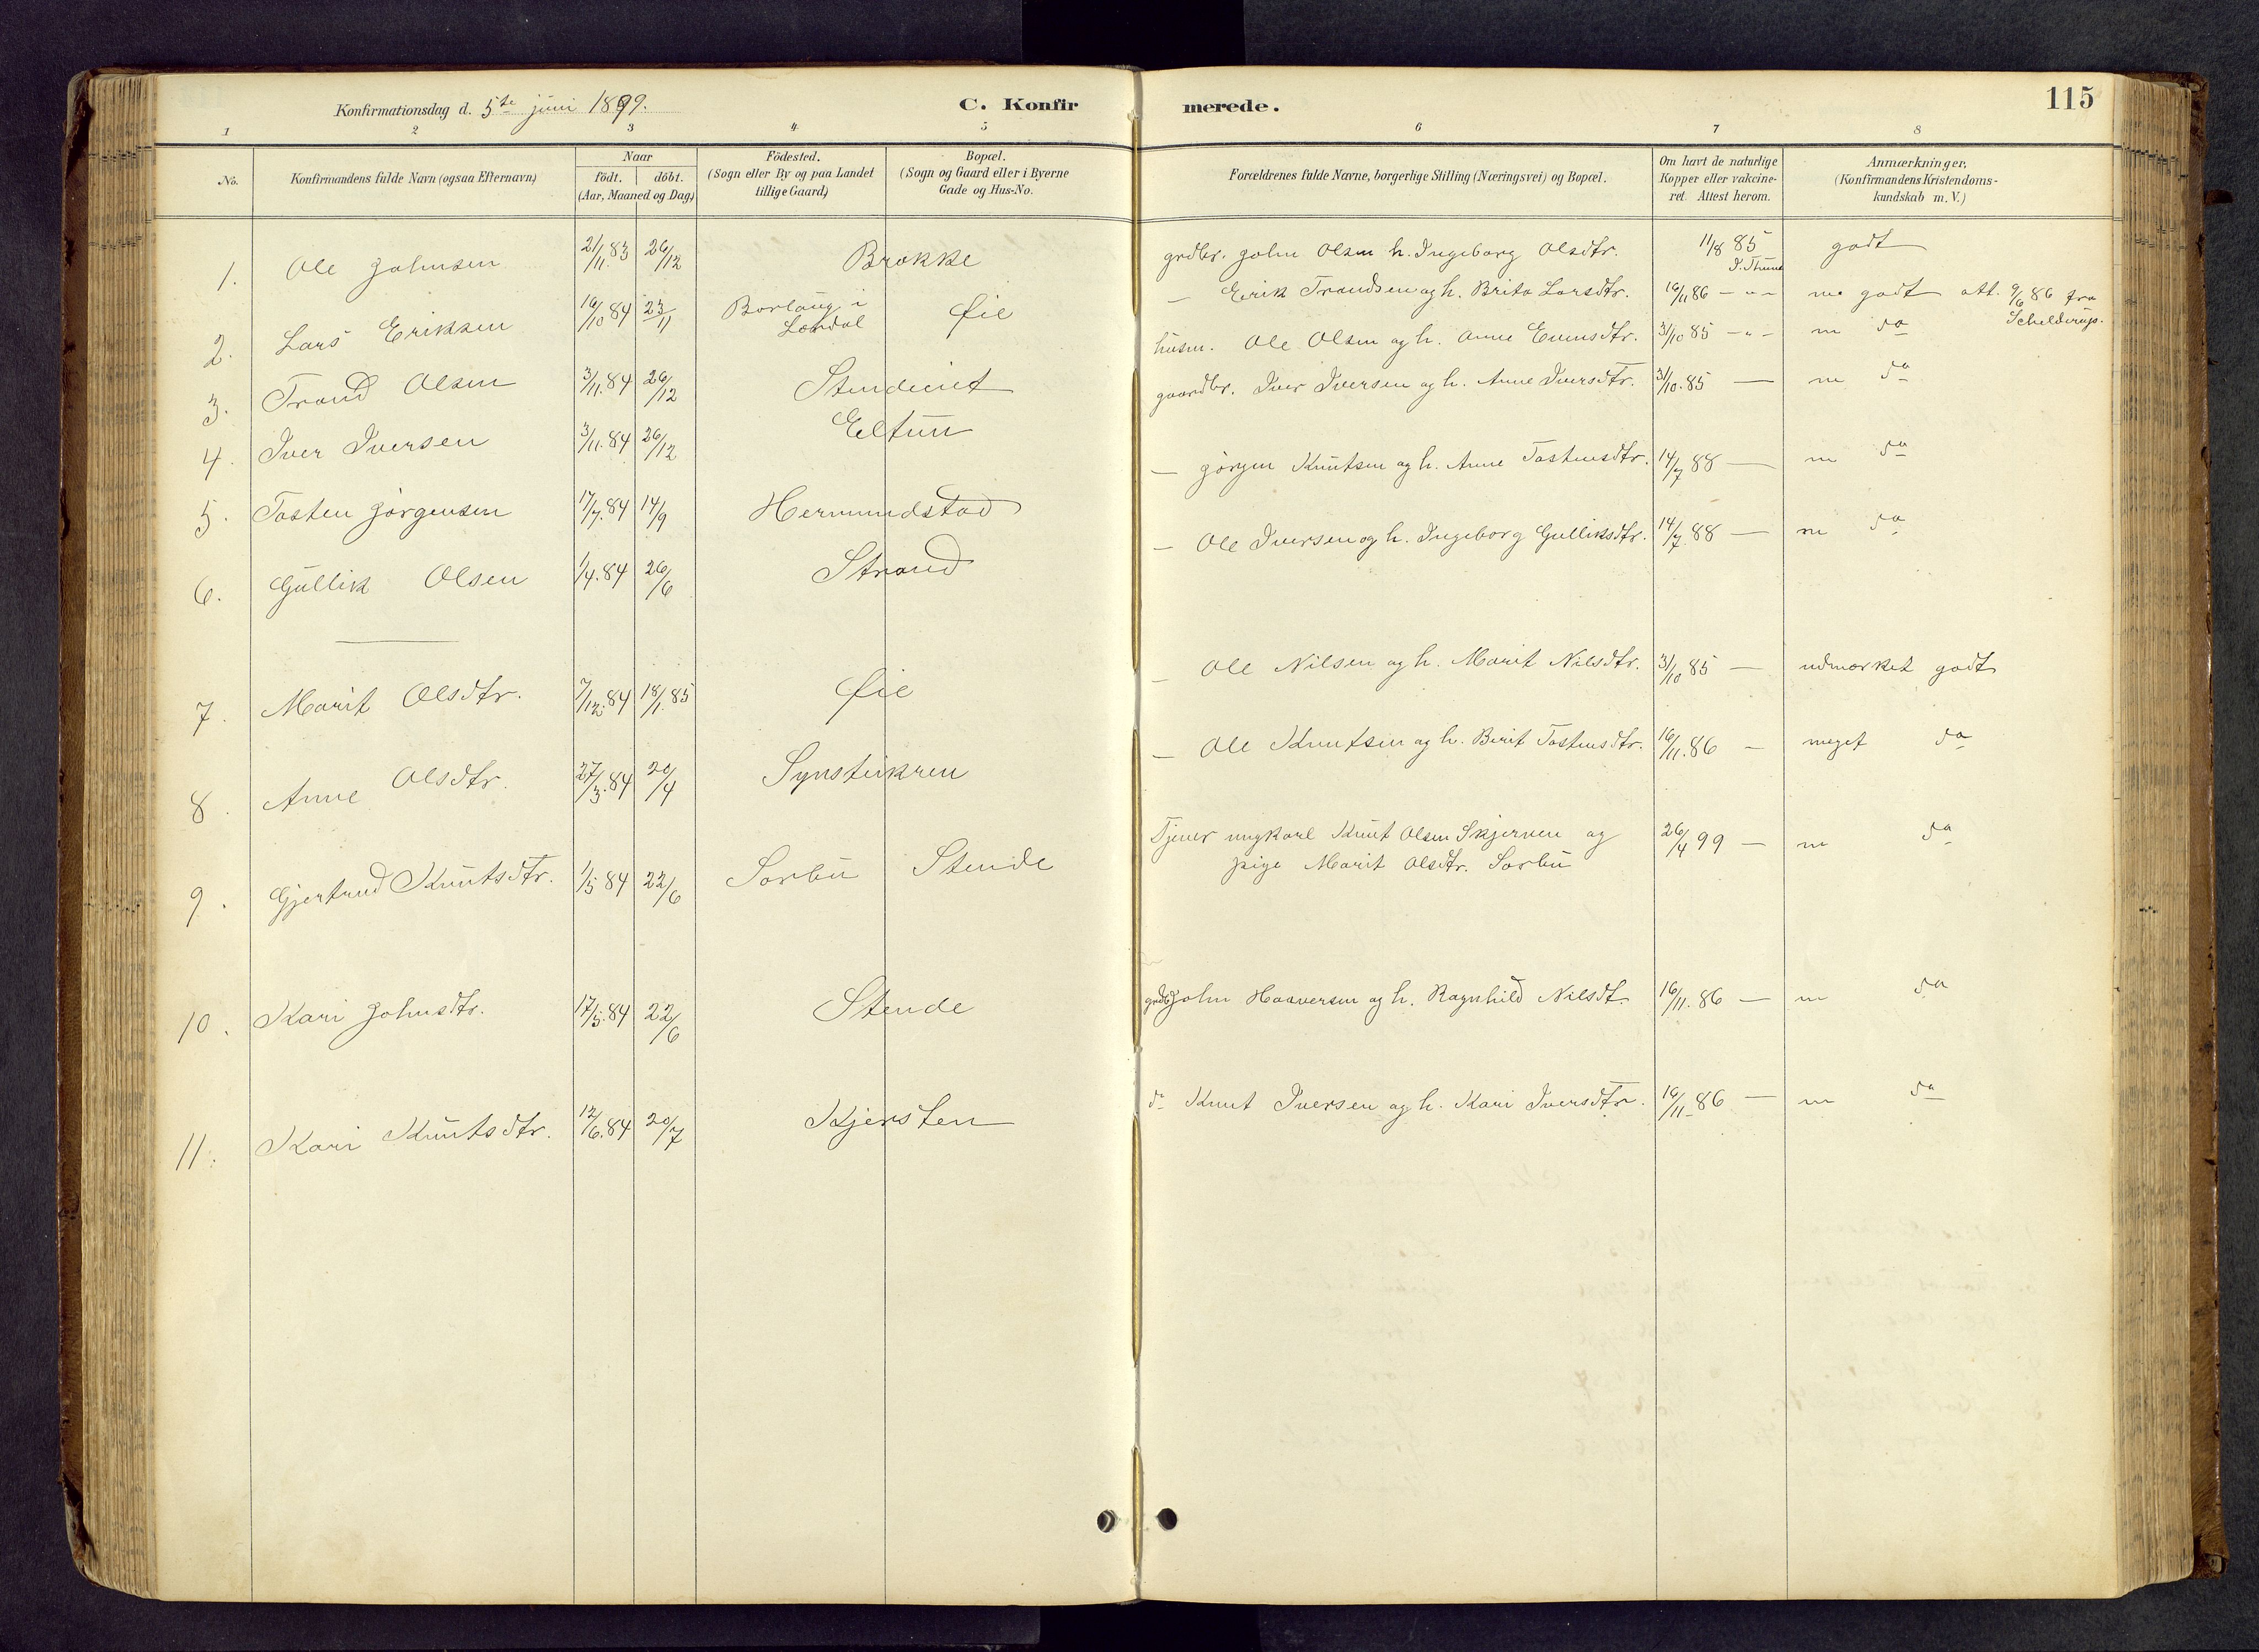 Konfirmationsdag d. 5te juni 1899.
C. Konfir
merede.
115
1 2 3 4 5 6 7 8
No.
Konfirmandens fulde Navn (ogsaa Efternavn)
Naar
födt. döbt.
(Aar, Maaned og Dag)
Födested.
(Sogn eller By og paa Landet
tillige Gaard)
Bopæl.
(Sogn og Gaard eller i Byerne
Gade og Hus-No.
Forældrenes fulde Navne, borgerlige Stilling (Næringsvei) og Bopæl.
Om havt de naturlige
Kopper eller vakcine-
ret. Attest herom.
Anmærkninger.
(Konfirmandens Kristendoms-
kundskab m. V.)
1. Ole Johnsen 21/11.83 26/12 Brokke grdbr. John Olsen h. Ingeborg Olsdtr. 11/8 85 godt
I. Thune
2. Lars Eriksen 16/10 84 23/11 Borlaug i Øie — Eirik Trondsen og h. Brita Larsdtr. 16/11 86 - " - me godt att. 9/6 86 fra
Lærdal
Schelderup.
3. Trond Olsen 3/11.84 26/12 Stendeiet husm. Ole Olsen og h. Anne Evensdtr. 31/10 85 - " - m do
4. Iver Iversen 3/11.84 26/12 Eltun gaardbr. Iver Iversen og h. Anne Iversdtr. 31/10.85 — m do
5. Tosten Jørgensen 17/7.84 14/9 Hermundstad — Jørgen Knutsen og h. Anne Tostensdtr. 14/7 88 — m do
6. Gullik Olsen 1/4.84 26/6 Strand — Ole Iversen og h. Ingeborg Gulliksdtr. 14/7.88 — m do
7. Marit Olsdtr. 7/12.84 18/1.85 Øie — Ole Nilsen og h. Marit Nilsdtr. 31/10 85 — udmærket godt
8. Anne Olsdtr. 27/3.84 20/4 Synsteikren — Ole Knutsen og h. Berit Tostensdtr. 16/11.86 — meget do
9. Gjertrud Knutsdtr. 1/5 84 22/6 Sorbu Stende Tjener ungkarl Knut Olsen Skjerven og 26/4 99 — m do
pige Marit Olsdtr. Sorbu
10. Kari Johnsdtr. 17/5.84 22/6 Stende grdbr John Haaversen og h. Ragnhild Nilsdt. 16/11.86 — m do
11. Kari Knutsdtr. 12/6.84 20/7 Kjersten do Knut Iversen og h. Kari Iversdtr. 16/11.86 — m do